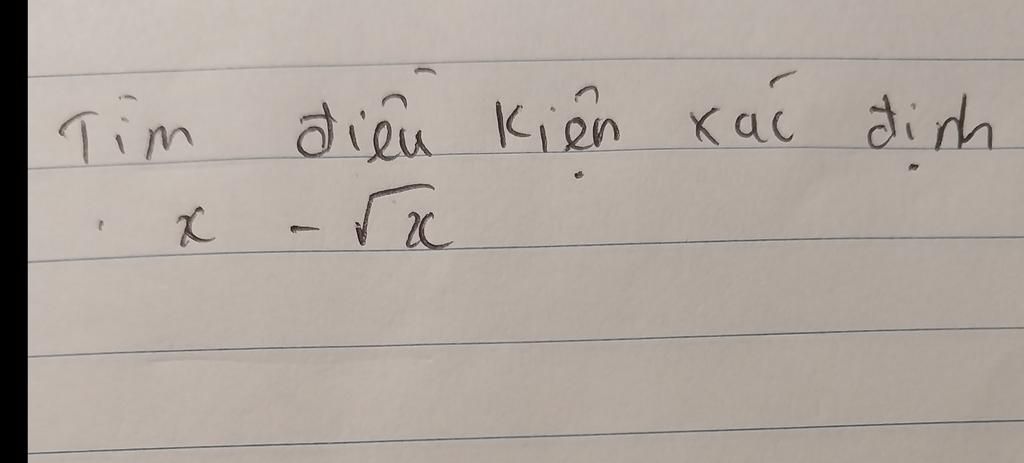 Tìm điều kiện xác định
x - √x